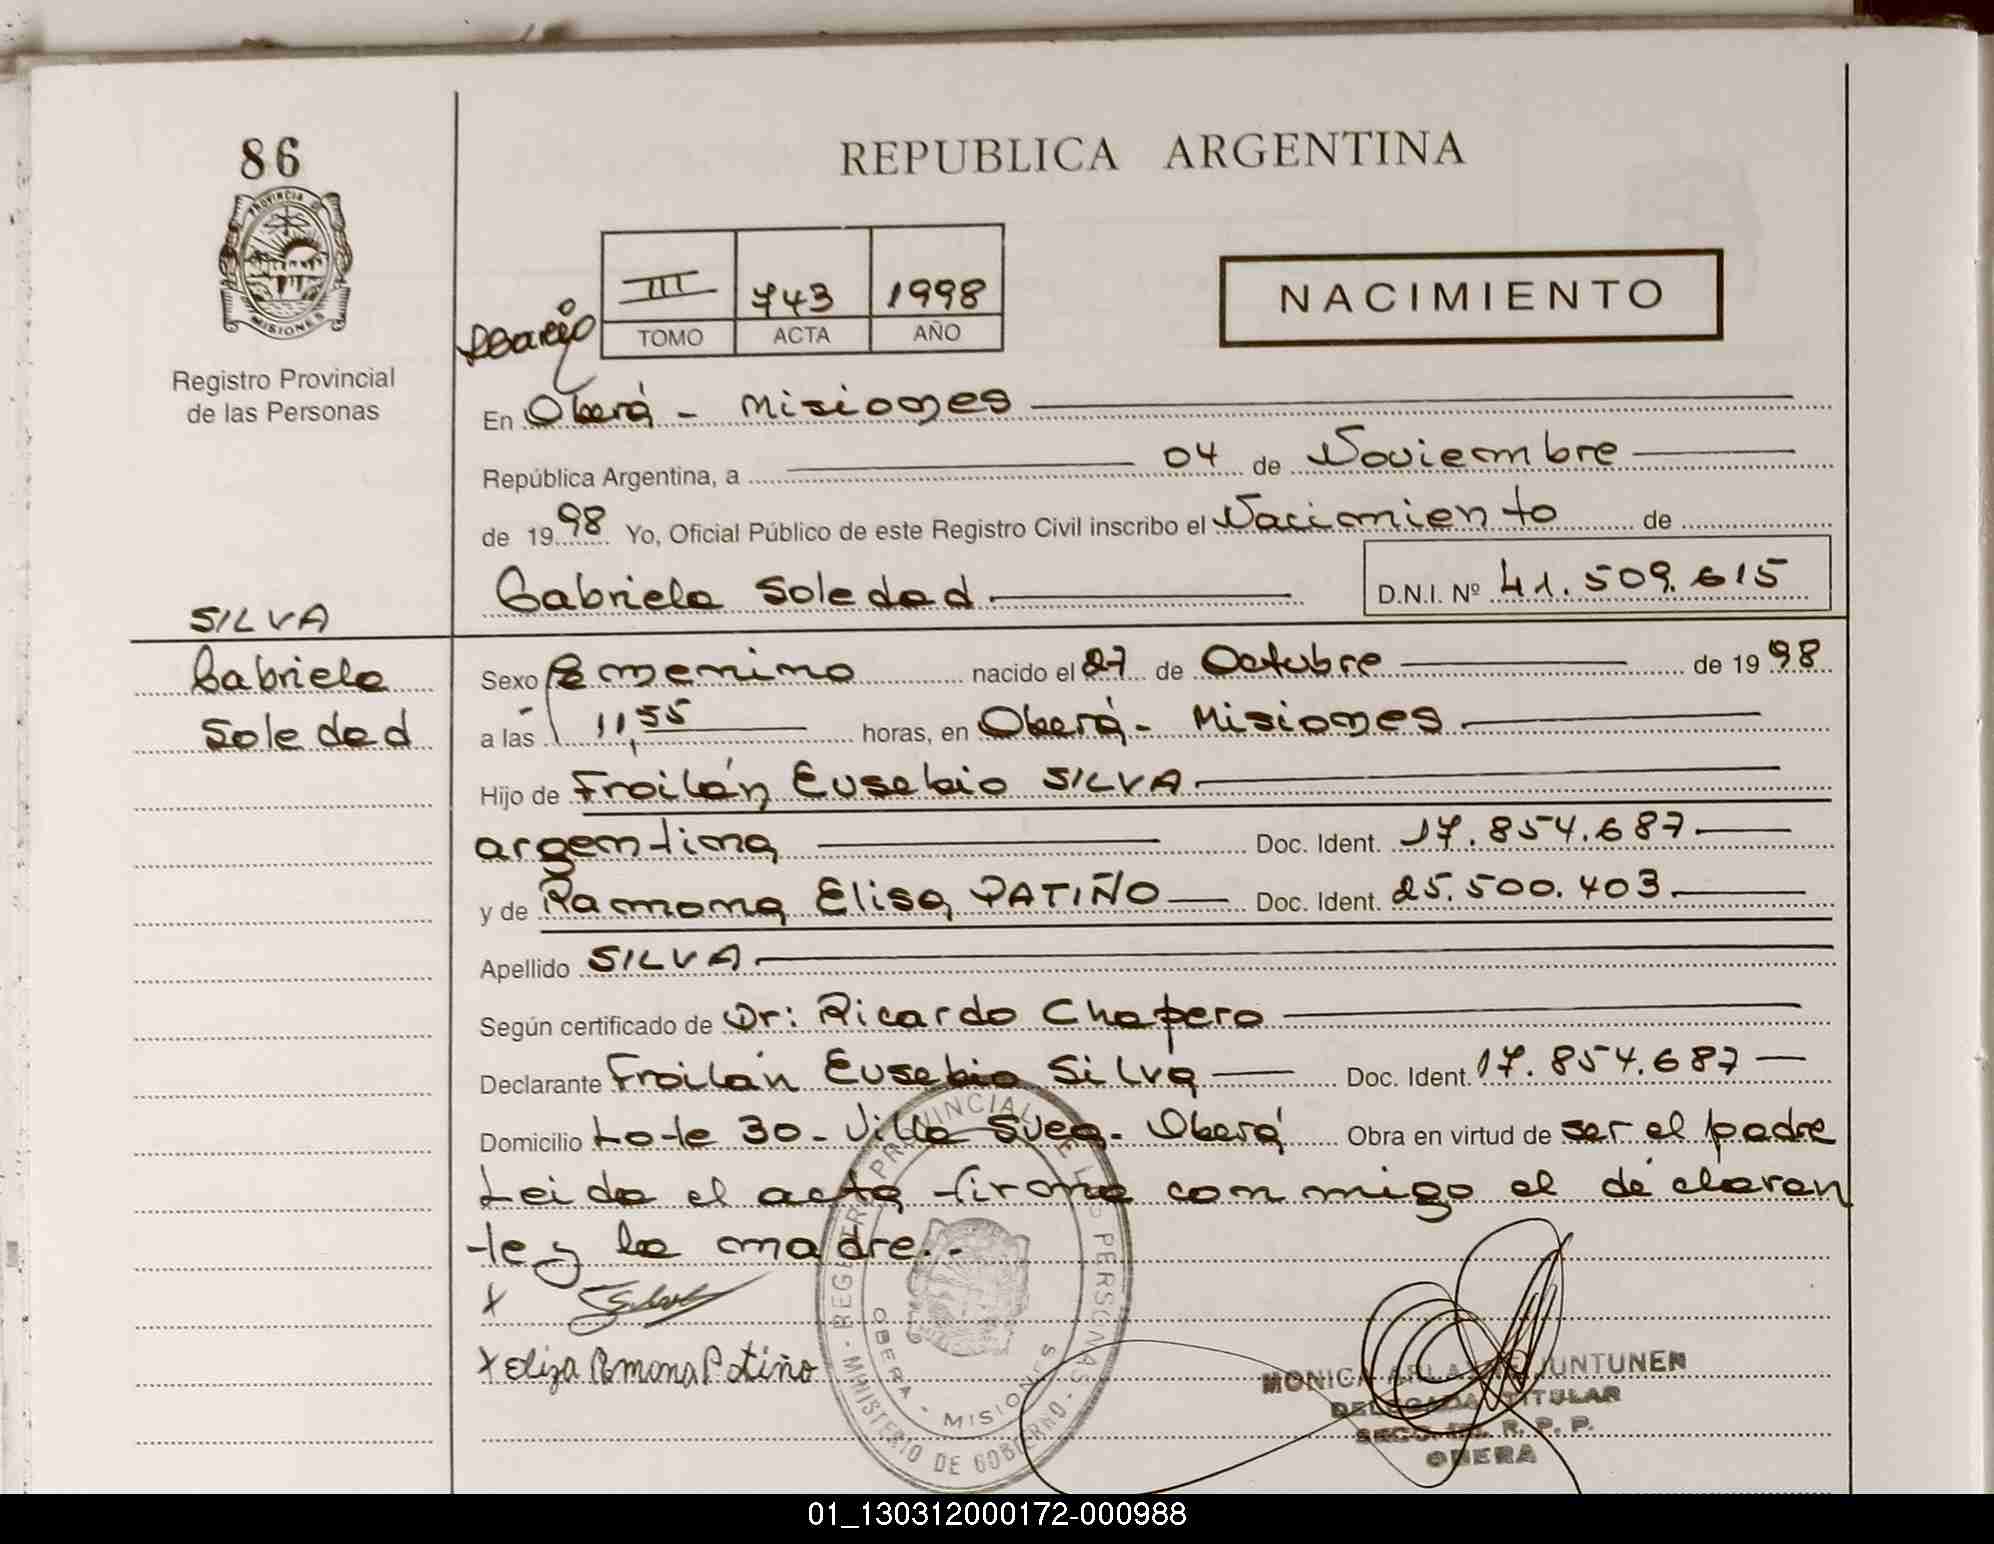 86
REPUBLICA ARGENTINA
PROVINCIA D
MISIONES
III 743 1998
TOMO ACTA AÑO
NACIMIENTO
Registro Provincial
de las Personas
En Oberá - Misiones
República Argentina, a 04 de Noviembre
de 1998 Yo, Oficial Público de este Registro Civil inscribo el Nacimiento de
Gabriela Soledad D.N.I. Nº 41.509.615
SILVA
Gabriela
Soledad
Sexo femenino nacido el 27 de Octubre de 1998
a las 11,55 horas, en Oberá - Misiones
Hijo de Froilán Eusebio SILVA
argentina Doc. Ident. 17.854.687
y de Ramona Elisa PATIÑO Doc. Ident. 25.500.403
Apellido SILVA
Según certificado de Dr: Ricardo Chapero
Declarante Froilán Eusebio Silva Doc. Ident. 17.854.687
Domicilio Lote 30 - Villa Svea - Oberá Obra en virtud de ser el padre
Leida el acta firma conmigo el declaran
te y la madre..
x
x eliza Romona Patiño
REGISTRO PROVINCIAL DE LAS PERSONAS
MINISTERIO DE GOBIERNO
OBERA - MISIONES
MONICA JUNTUNEN
DELEGADA TITULAR
R. P. P.
OBERA
01_130312000172-000988